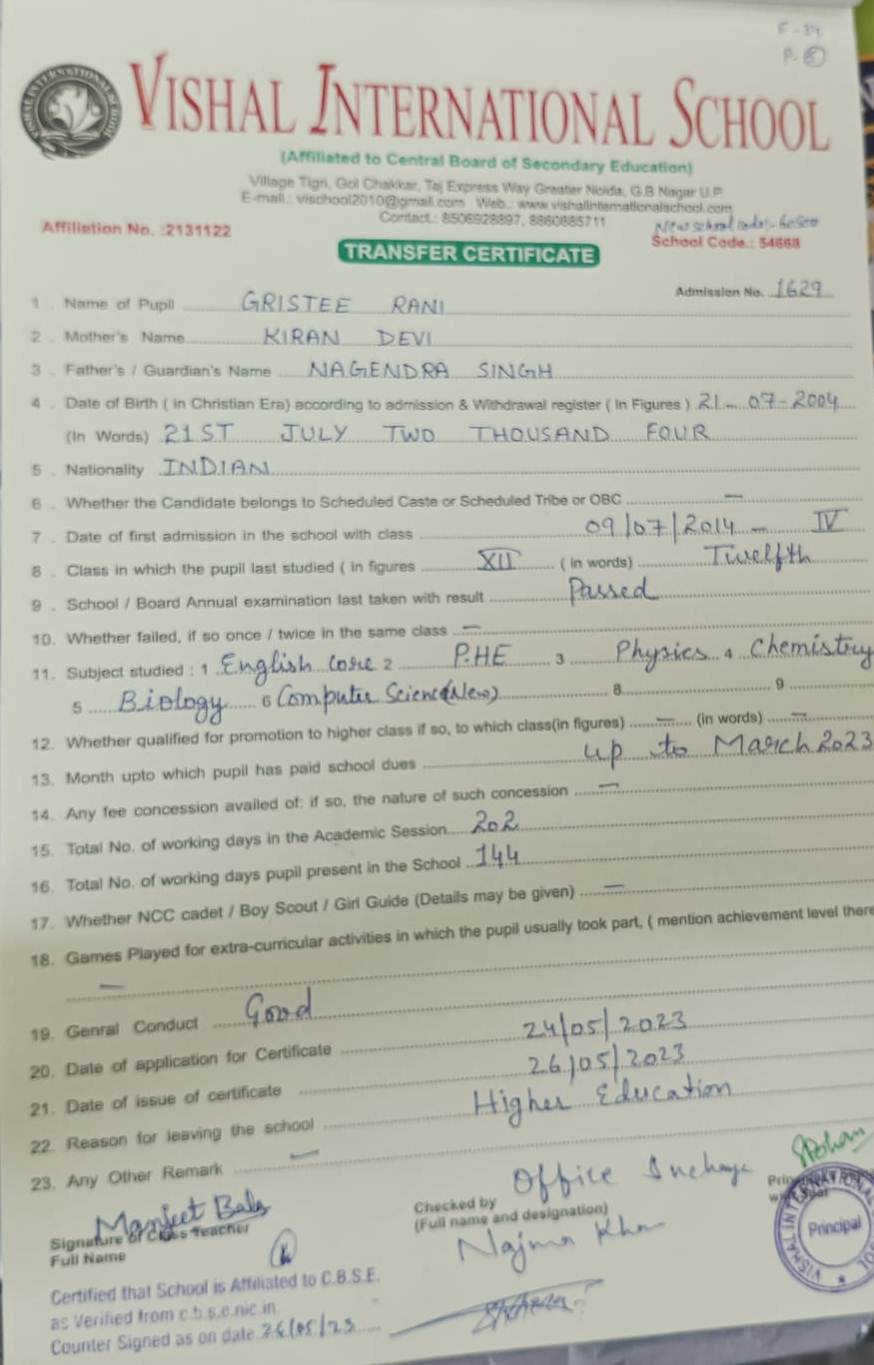 F-34
P. 5
VISHAL INTERNATIONAL SCHOOL
(Affiliated to Central Board of Secondary Education)
Village Tigri, Gol Chakkar, Taj Express Way Greater Noida, G.B Nagar U.P.
E-mail.: vischool2010@gmail.com Web.: www.vishalinternationalschool.com
Contact.: 8506928897, 8860885711
New school code:-
Affiliation No. :2131122 School Code.: 54668
TRANSFER CERTIFICATE
Admission No. 1629
1 . Name of Pupil GRISTEE RANI
2 . Mother's Name KIRAN DEVI
3 . Father's / Guardian's Name NAGENDRA SINGH
4 . Date of Birth ( in Christian Era) according to admission & Withdrawal register ( In Figures ) 21- 07-2004
(In Words) 21ST JULY TWO THOUSAND FOUR
5 . Nationality INDIAN
6 . Whether the Candidate belongs to Scheduled Caste or Scheduled Tribe or OBC —
7 . Date of first admission in the school with class 09/07/2014 - IV
8 . Class in which the pupil last studied ( in figures XII ( in words) Twelfth
9 . School / Board Annual examination last taken with result Passed
10. Whether failed, if so once / twice in the same class —
11. Subject studied : 1 English Core 2 P.HE 3 Physics 4 Chemistry
5 Biology 6 Computer Science(New) 8 9
12. Whether qualified for promotion to higher class if so, to which class(in figures) — (in words) —
13. Month upto which pupil has paid school dues up to March 2023
14. Any fee concession availed of: if so, the nature of such concession —
15. Total No. of working days in the Academic Session 202
16. Total No. of working days pupil present in the School 144
17. Whether NCC cadet / Boy Scout / Girl Guide (Details may be given) —
18. Games Played for extra-curricular activities in which the pupil usually took part, ( mention achievement level there
—
19. Genral Conduct Good
20. Date of application for Certificate 24/05/2023
21. Date of issue of certificate 26/05/2023
22. Reason for leaving the school Higher Education
23. Any Other Remark —
Manjeet Bala
Signature of Class Teacher
Full Name
Office Incharge
Checked by
(Full name and designation)
Najma Khan
VISHAL INTERNATIONAL
Principal
Certified that School is Affiliated to C.B.S.E.
as Verified from c.b.s.e.nic.in
Counter Signed as on date 26/05/23